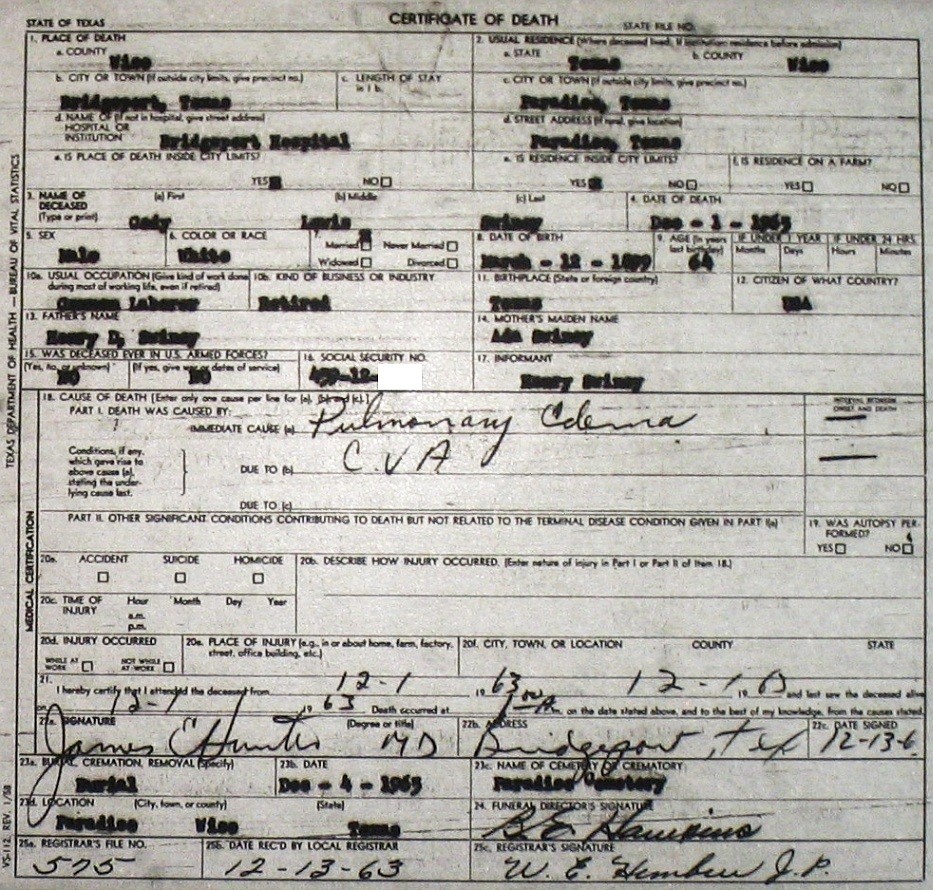 STATE OF TEXAS
CERTIFICATE OF DEATH
STATE FILE NO.
1. PLACE OF DEATH
a. COUNTY
Wise
2. USUAL RESIDENCE (Where deceased lived. If institution: residence before admission)
a. STATE
Texas
b. COUNTY
Wise
b. CITY OR TOWN (If outside city limits, give precinct no.)
Bridgeport, Texas
c. LENGTH OF STAY
in 1 b.
c. CITY OR TOWN (If outside city limits, give precinct no.)
Paradise, Texas
d. NAME OF (If not in hospital, give street address)
HOSPITAL OR
INSTITUTION
Bridgeport Hospital
d. STREET ADDRESS (If rural, give location)
Paradise, Texas
e. IS PLACE OF DEATH INSIDE CITY LIMITS?
YES NO
e. IS RESIDENCE INSIDE CITY LIMITS?
YES NO
f. IS RESIDENCE ON A FARM?
YES NO
3. NAME OF
DECEASED
(Type or print)
(a) First
(b) Middle
(c) Last
Lewis
Swiney
4. DATE OF DEATH
Dec - 1 - 1963
5. SEX
Male
6. COLOR OR RACE
White
7.
Married Never Married
Widowed Divorced
8. DATE OF BIRTH
March - 12 - 1899
9. AGE (In years
last birthday)
64
IF UNDER 1 YEAR
Months Days
IF UNDER 24 HRS.
Hours Minutes
10a. USUAL OCCUPATION (Give kind of work done
during most of working life, even if retired)
Common Laborer
10b. KIND OF BUSINESS OR INDUSTRY
Retired
11. BIRTHPLACE (State or foreign country)
Texas
12. CITIZEN OF WHAT COUNTRY?
USA
13. FATHER'S NAME
Henry D, Swiney
14. MOTHER'S MAIDEN NAME
Ada Swiney
15. WAS DECEASED EVER IN U.S. ARMED FORCES?
(Yes, no, or unknown)
NO
(If yes, give war or dates of service)
NO
16. SOCIAL SECURITY NO.
459-12-
17. INFORMANT
Henry Swiney
18. CAUSE OF DEATH [Enter only one cause per line for (a), (b) and (c).]
PART I. DEATH WAS CAUSED BY:
IMMEDIATE CAUSE (a)
Pulmonary Edema
INTERVAL BETWEEN
ONSET AND DEATH
Conditions, if any,
which gave rise to
above cause (a),
stating the under-
lying cause last.
DUE TO (b)
C.V A
DUE TO (c)
PART II. OTHER SIGNIFICANT CONDITIONS CONTRIBUTING TO DEATH BUT NOT RELATED TO THE TERMINAL DISEASE CONDITION GIVEN IN PART I(a)
19. WAS AUTOPSY PER-
FORMED?
YES NO
20a. ACCIDENT SUICIDE HOMICIDE
20b. DESCRIBE HOW INJURY OCCURRED. (Enter nature of injury in Part I or Part II of item 18.)
20c. TIME OF
INJURY
Hour Month Day Year
a.m.
p.m.
20d. INJURY OCCURRED
WHILE AT
WORK
NOT WHILE
AT WORK
20e. PLACE OF INJURY (e.g., in or about home, farm, factory,
street, office building, etc.)
20f. CITY, TOWN, OR LOCATION COUNTY STATE
21.
I hereby certify that I attended the deceased from 12-1 19 63 12-1 19 63 and last saw the deceased alive
on 12-1 19 63. Death occurred at m. on the date stated above, and to the best of my knowledge, from the causes stated.
22a. SIGNATURE
(Degree or title)
James C Hunter MD
22b. ADDRESS
Bridgeport, Tex
22c. DATE SIGNED
12-13-6
23a. BURIAL, CREMATION, REMOVAL (Specify)
Burial
23b. DATE
Dec - 4 - 1963
23c. NAME OF CEMETERY OR CREMATORY
Paradise Cemetery
23d. LOCATION (City, town, or county) (State)
Paradise Wise Texas
24. FUNERAL DIRECTOR'S SIGNATURE
B.E. Hawkins
25a. REGISTRAR'S FILE NO.
575
25b. DATE REC'D BY LOCAL REGISTRAR
12-13-63
25c. REGISTRAR'S SIGNATURE
W. E. J.P.
TEXAS DEPARTMENT OF HEALTH — BUREAU OF VITAL STATISTICS
MEDICAL CERTIFICATION
VS-112, REV. 1/58